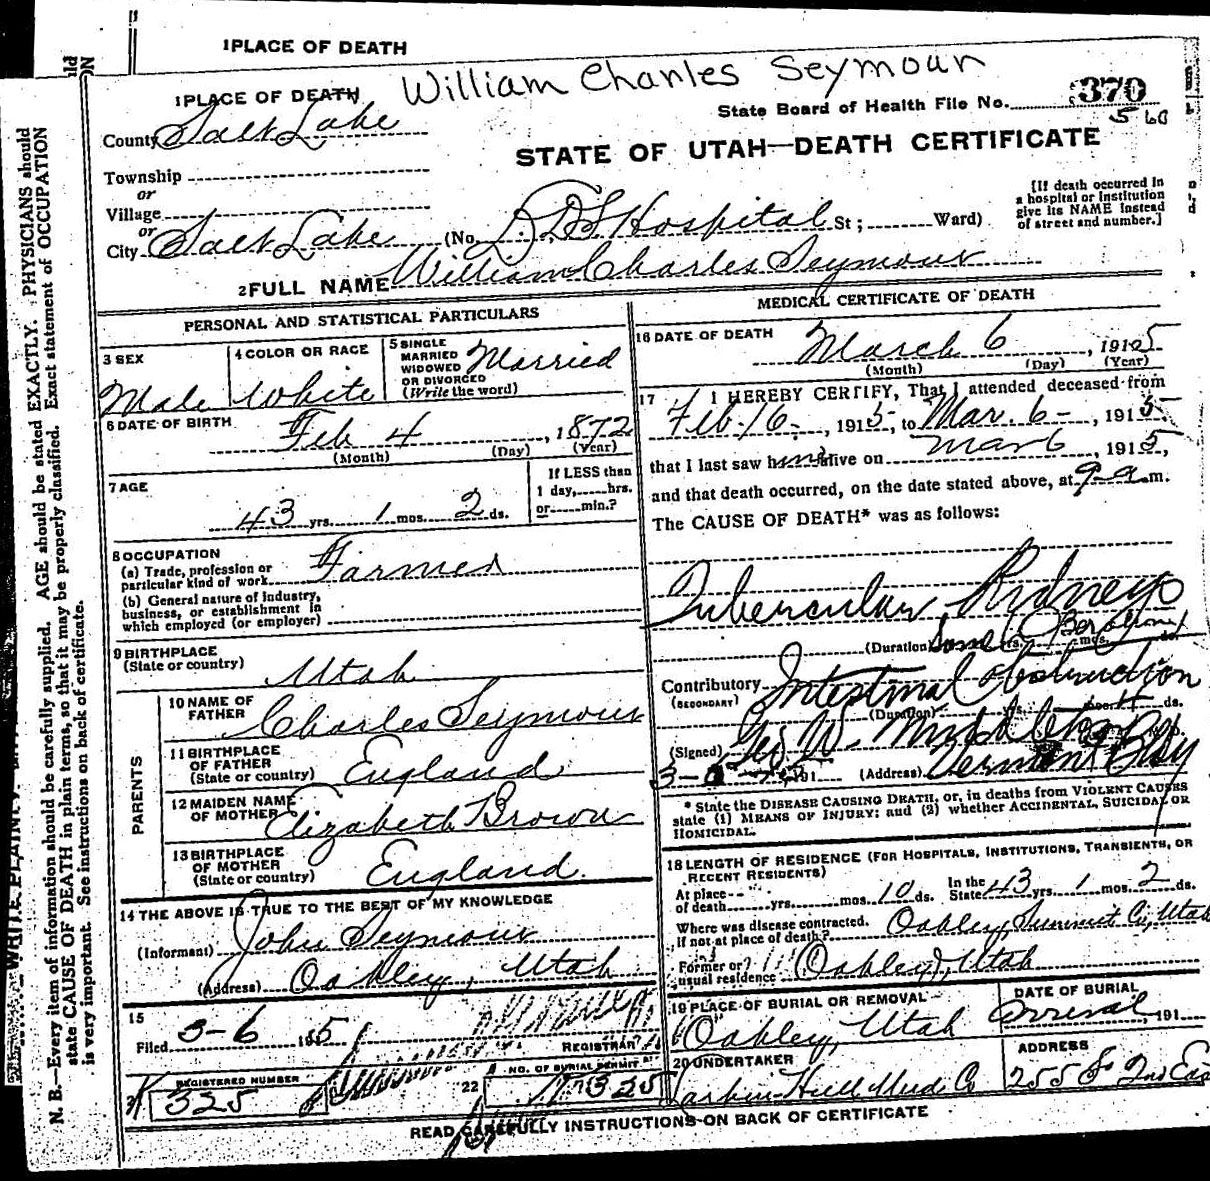 1 PLACE OF DEATH
1 PLACE OF DEATH
William Charles Seymour
State Board of Health File No. 370
560
County Salt Lake
STATE OF UTAH—DEATH CERTIFICATE
Township
or
Village
or
City Salt Lake (No. L.D.S Hospital St; Ward)
[If death occurred in
a hospital or institution
give its NAME instead
of street and number.]
2 FULL NAME William Charles Seymour
PERSONAL AND STATISTICAL PARTICULARS
3 SEX
Male
4 COLOR OR RACE
White
5 SINGLE
MARRIED
WIDOWED
OR DIVORCED
(Write the word)
Married
6 DATE OF BIRTH
Feb 4, 1872
(Month) (Day) (Year)
7 AGE
43 yrs. 1 mos. 2 ds.
If LESS than
1 day, hrs.
or min.?
8 OCCUPATION
(a) Trade, profession or
particular kind of work Farmer
(b) General nature of industry,
business, or establishment in
which employed (or employer)
9 BIRTHPLACE
(State or country)
Utah
PARENTS
10 NAME OF
FATHER Charles Seymour
11 BIRTHPLACE
OF FATHER
(State or country) England
12 MAIDEN NAME
OF MOTHER Elizabeth Brown
13 BIRTHPLACE
OF MOTHER
(State or country) England.
14 THE ABOVE IS TRUE TO THE BEST OF MY KNOWLEDGE
(Informant) John Seymour
(Address) Oakley, Utah
15
Filed 3-6 1915
REGISTRAR
REGISTERED NUMBER
325
22
NO. OF BURIAL PERMIT
325
MEDICAL CERTIFICATE OF DEATH
16 DATE OF DEATH
March 6, 1915
(Month) (Day) (Year)
17 I HEREBY CERTIFY, That I attended deceased from
Feb. 16-, 1915, to Mar. 6-, 1915.
that I last saw him alive on Mar 6, 1915,
and that death occurred, on the date stated above, at 9-a m.
The CAUSE OF DEATH* was as follows:
Tubercular Kidneys
(Duration) yrs. mos. ds.
Contributory Intestinal Obstruction
(SECONDARY)
(Duration) yrs. mos. 4 ds.
(Signed) Geo W. Middleton M.D.
3-6 191 (Address) Vermont Bldg
* State the DISEASE CAUSING DEATH, or, in deaths from VIOLENT CAUSES
state (1) MEANS OF INJURY; and (2) whether ACCIDENTAL, SUICIDAL OR
HOMICIDAL.
18 LENGTH OF RESIDENCE (FOR HOSPITALS, INSTITUTIONS, TRANSIENTS, OR
RECENT RESIDENTS)
At place
of death yrs. mos. 10 ds.
In the
State 43 yrs. 1 mos. 2 ds.
Where was disease contracted,
if not at place of death? Oakley, Summit Co, Utah
Former or
usual residence Oakley, Utah
19 PLACE OF BURIAL OR REMOVAL
Oakley, Utah
DATE OF BURIAL
Arrival, 191
20 UNDERTAKER
ADDRESS
255 So 2nd Eas
READ CAREFULLY INSTRUCTIONS ON BACK OF CERTIFICATE
N. B.—Every item of information should be carefully supplied. AGE should be stated EXACTLY. PHYSICIANS should
state CAUSE OF DEATH in plain terms, so that it may be properly classified. Exact statement of OCCUPATION
is very important. See instructions on back of certificate.